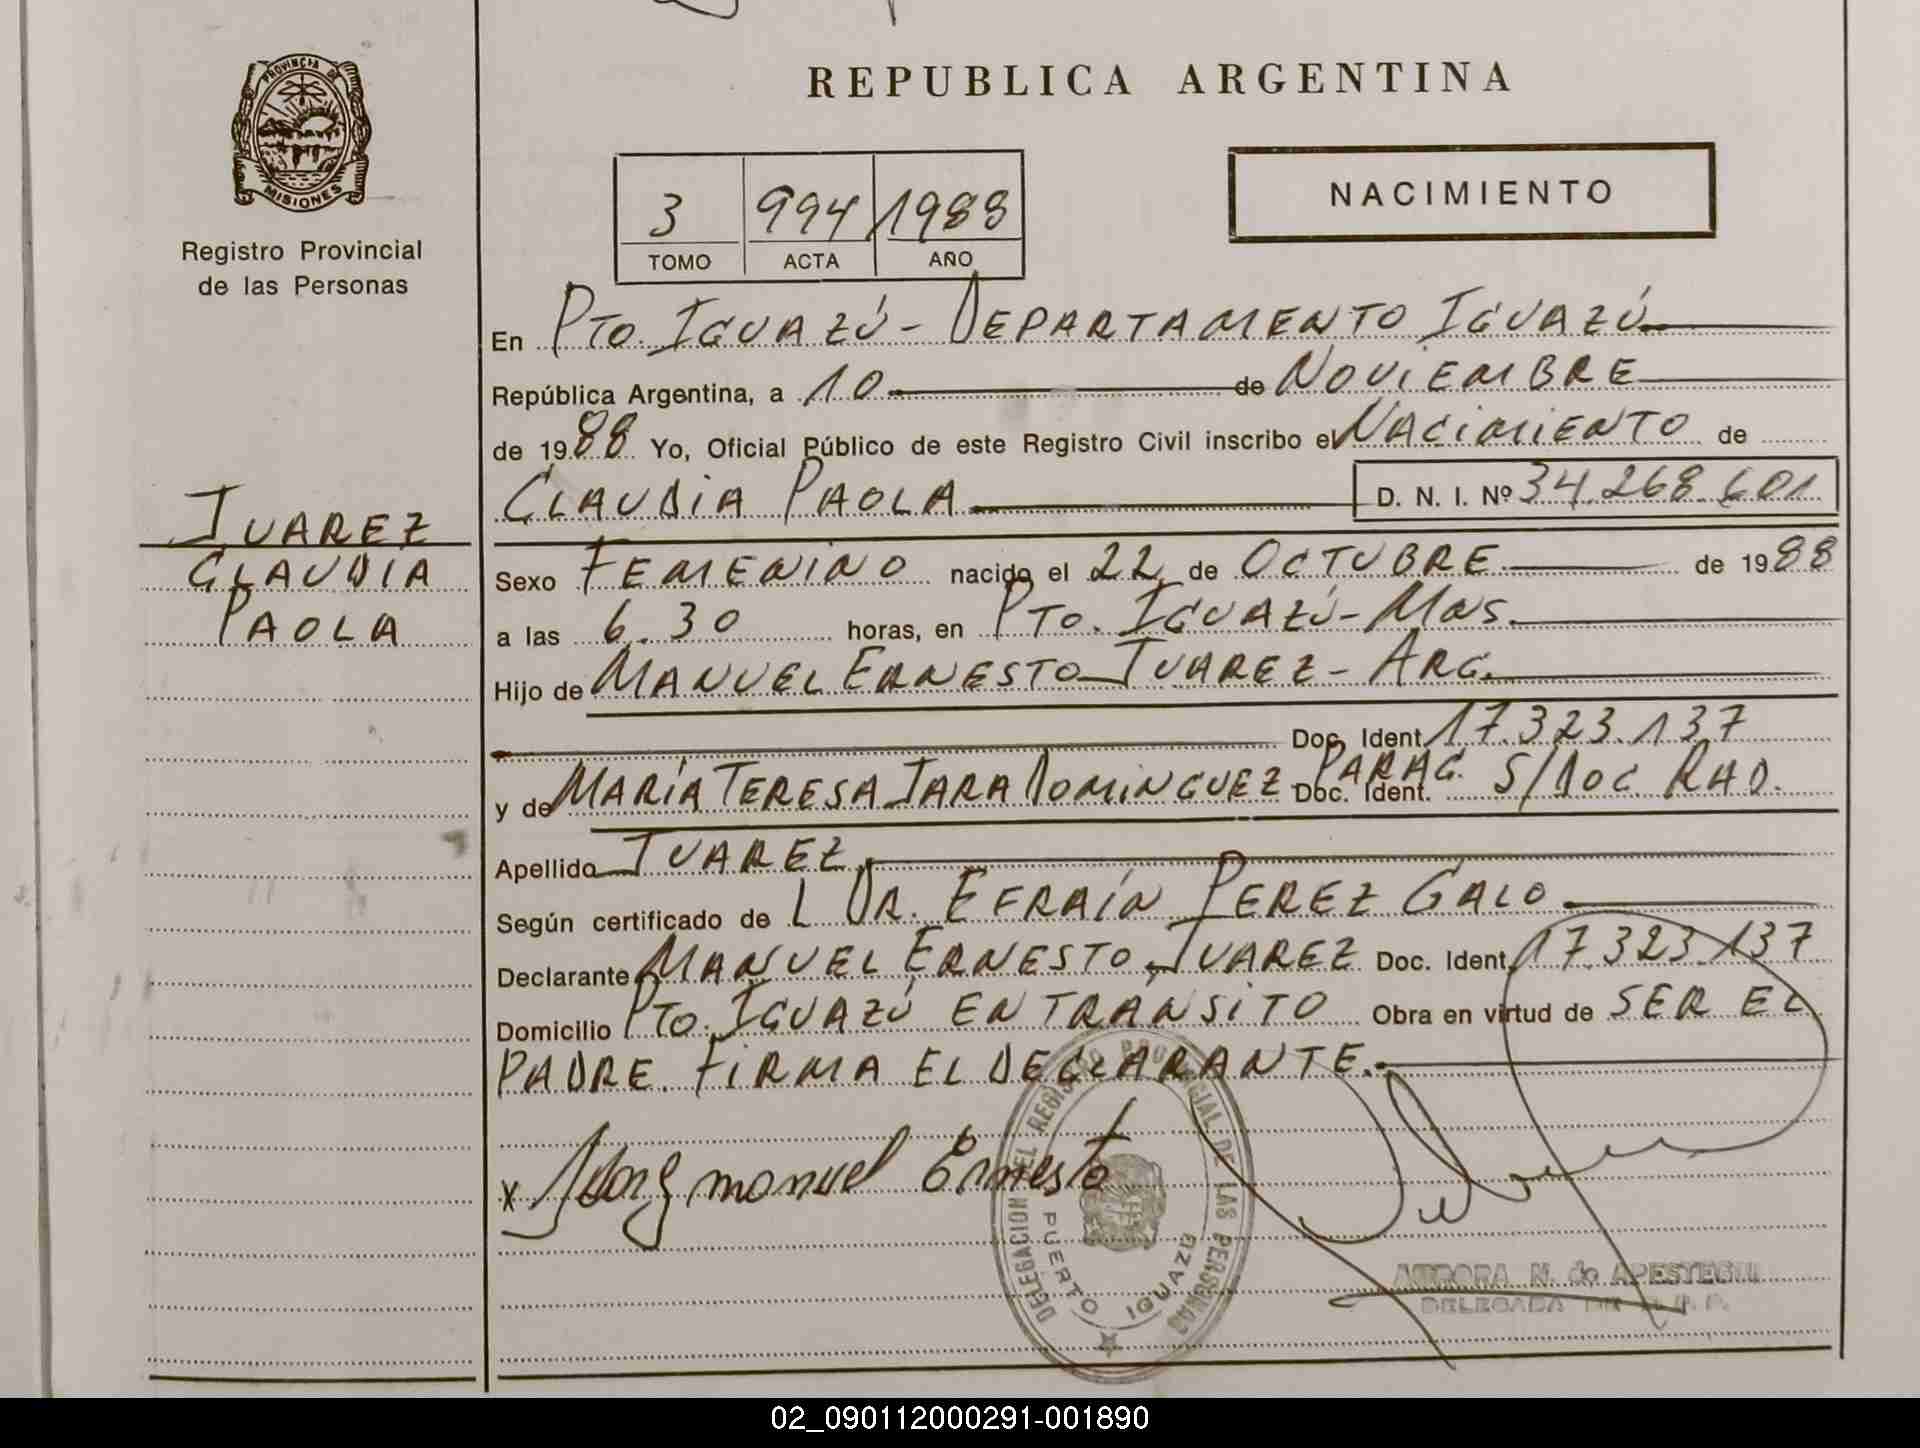 PROVINCIA DE
MISIONES
Registro Provincial
de las Personas
JUAREZ
CLAUDIA
PAOLA
REPUBLICA ARGENTINA
3 994 1988
TOMO ACTA AÑO
NACIMIENTO
En PTO. IGUAZÚ - DEPARTAMENTO IGUAZÚ
República Argentina, a 10 de NOVIEMBRE
de 1988 Yo, Oficial Público de este Registro Civil inscribo el NACIMIENTO de
CLAUDIA PAOLA D. N. I. Nº 34.268.601
Sexo FEMENINO nacido el 22 de OCTUBRE de 1988
a las 6.30 horas, en PTO. IGUAZÚ - Mnes.
Hijo de MANUEL ERNESTO JUAREZ - ARG.
Doc. Ident. 17.323.137
y de MARÍA TERESA JARA DOMINGUEZ PARAG. Doc. Ident. S/DOC RAD.
Apellido JUAREZ
Según certificado de L DR. EFRAÍN PEREZ GALO
Declarante MANUEL ERNESTO JUAREZ Doc. Ident. 17.323.137
Domicilio PTO. IGUAZÚ EN TRÁNSITO Obra en virtud de SER EL
PADRE. FIRMA EL DECLARANTE.
x Juarez manuel Ernesto
DELEGACION DEL REGISTRO PROVINCIAL DE LAS PERSONAS
PUERTO IGUAZU
AURORA N. de APESTEGUI
DELEGADA DE R. P. P.
02_090112000291-001890